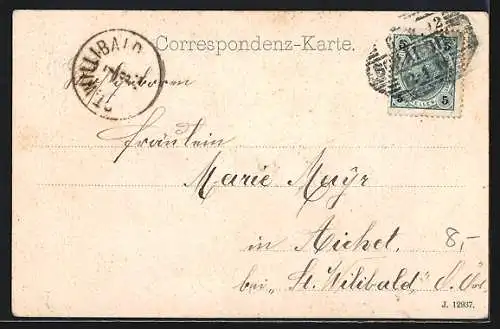 Correspondenz-Karte.
ST. WILLIBALD
5 5
HELLER
Fräulein
Marie Mayr
in Aichet,
8,-
bei „St. Wilibald“ O. Öst
J. 12937.